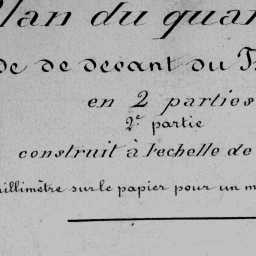 Plan du quar
de de devant du F
en 2 parties
2e partie
construit à l'echelle de
millimètre sur le papier pour un m